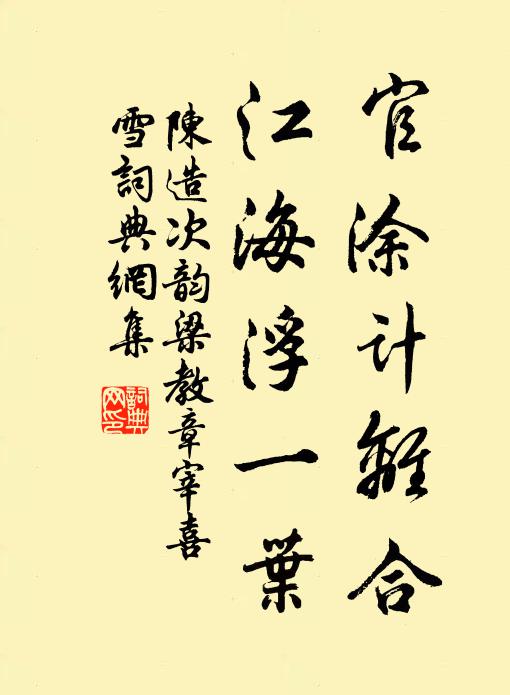 官涂计離合
江海浮一葉
陳造次韵梁教章宰喜
雪詞典網集
詞典
网印